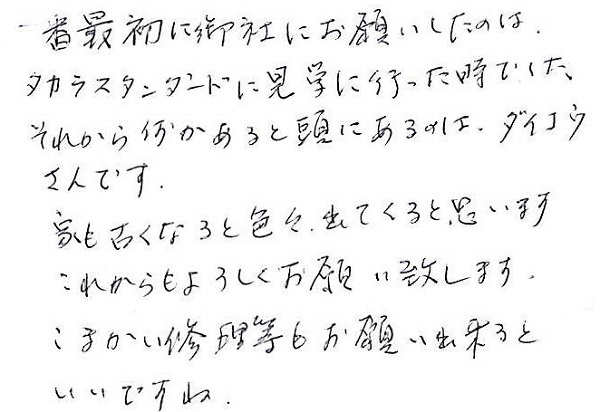 一番最初に御社にお願いしたのは、
タカラスタンダードに見学に行った時でした、
それから何かあると頭にあるのは、ダイコウ
さんです.
家も古くなると色々.出てくると思います
これからもよろしくお願い致します.
こまかい修理等もお願い出来ると
いいですね.